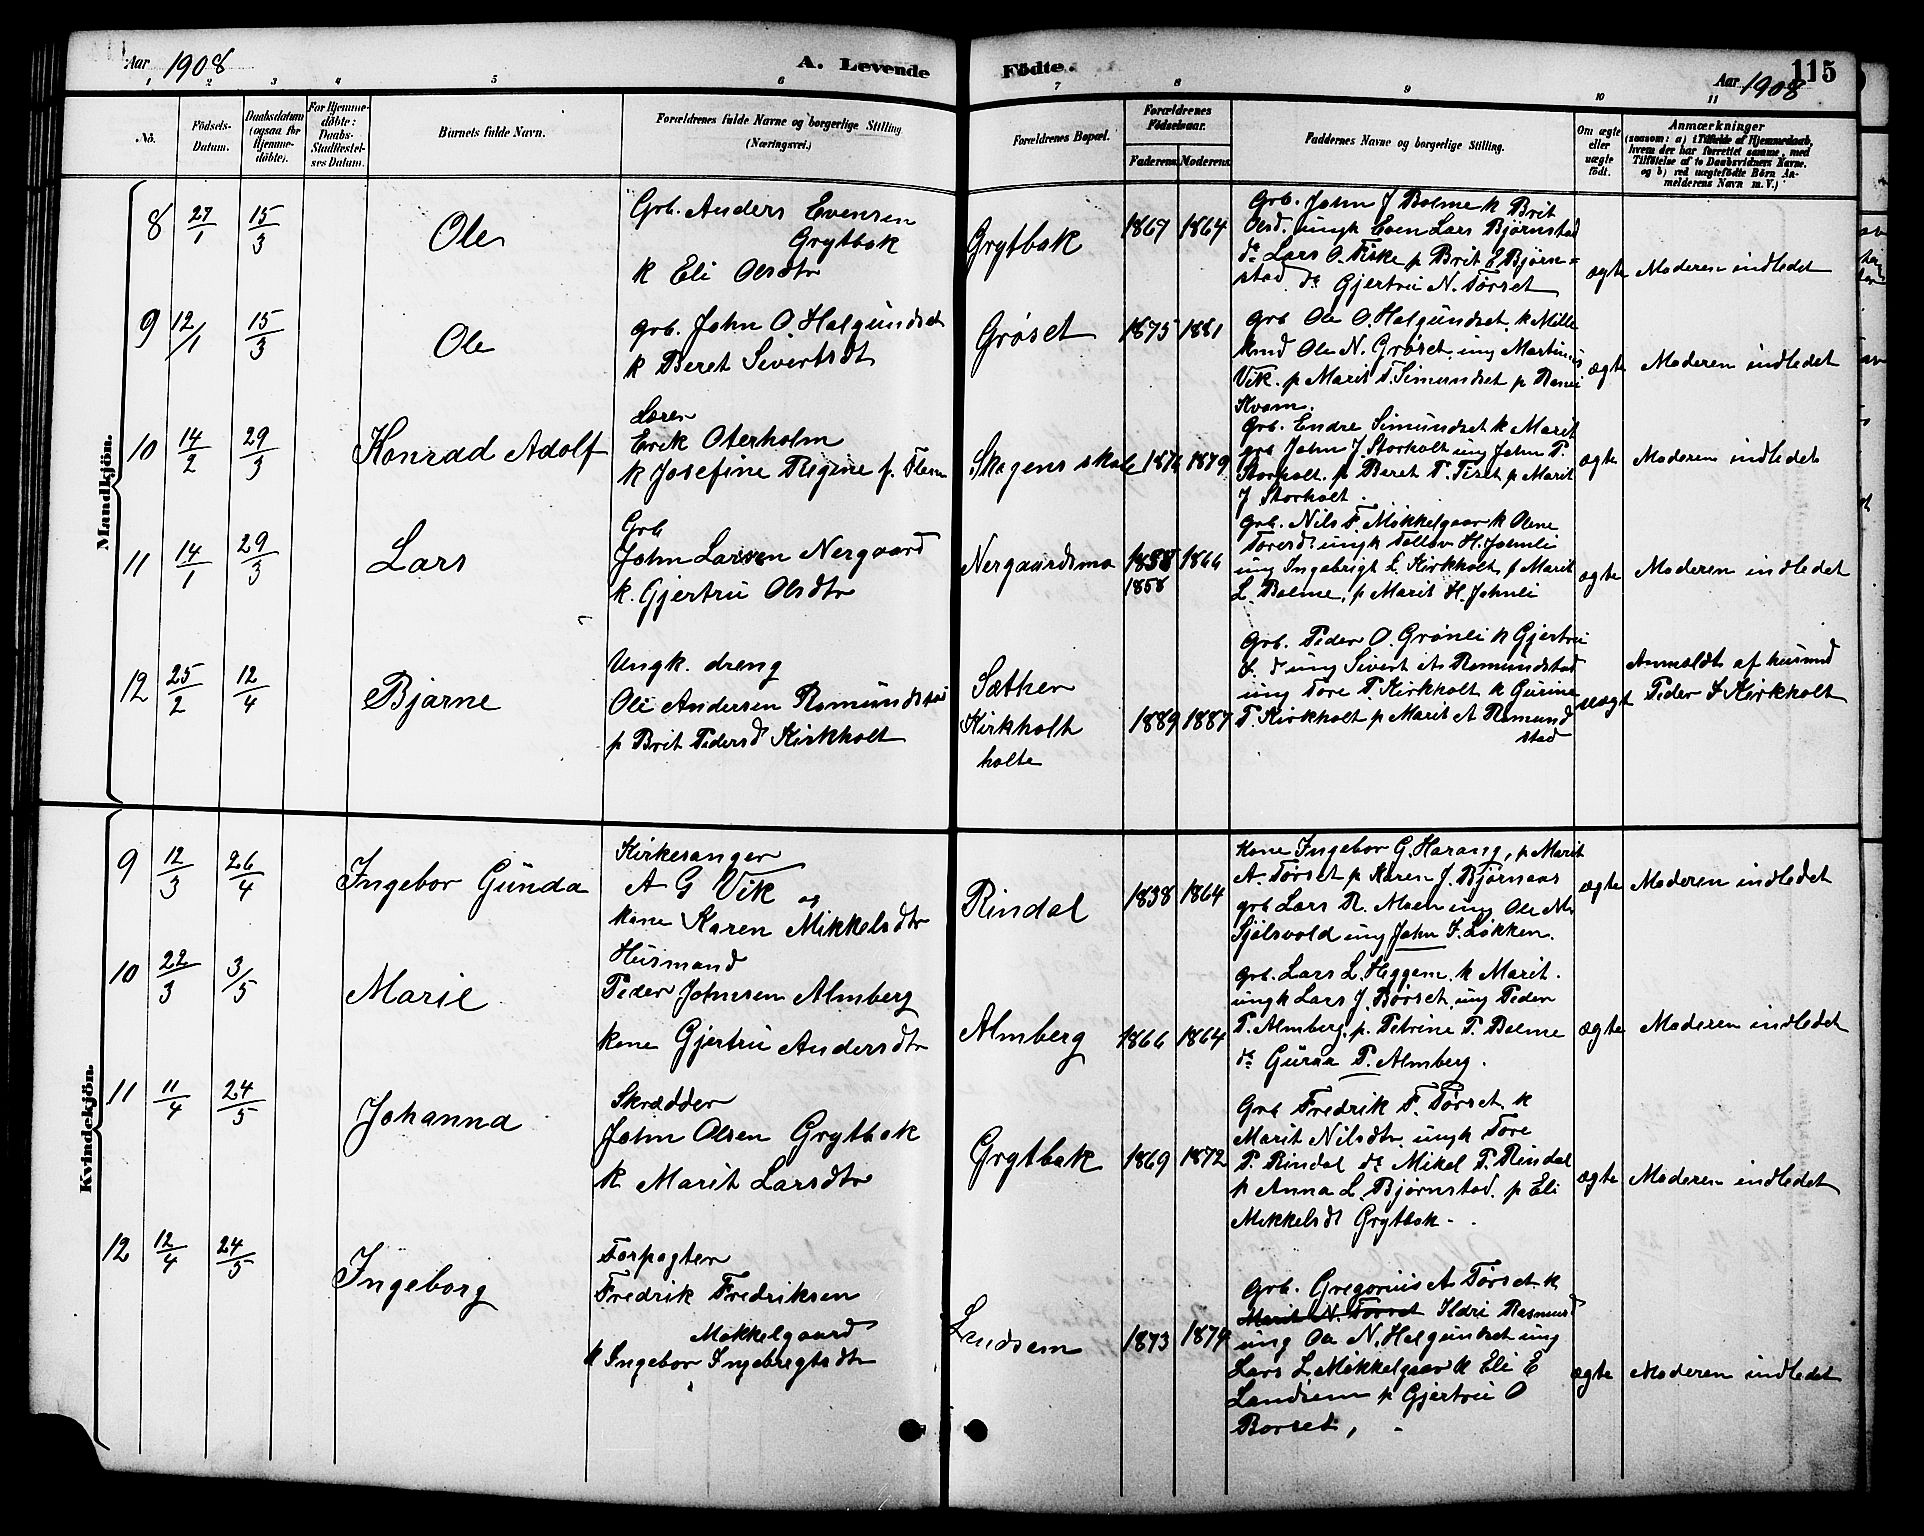 Aar 1908
A. Levende
Födte.
Aar 1908
115
1 2 3 4 5 6 7 8 9 10 11
No.
Födsels-Datum.
Daabsdatum (ogsaa for Hjemmedöbte).
For Hjemmedöbte: Daabs-Stadfæstelses Datum.
Barnets fulde Navn.
Forældrenes fulde Navne og borgerlige Stilling (Næringsvei.)
Forældrenes Bopæl.
Forældrenes Födselsaar.
Faderens. Moderens.
Faddernes Navne og borgerlige Stilling.
Om ægte eller uægte födt.
Anmærkninger
(saasom: a) i Tilfælde af Hjemmedaab, hvem der har forrettet samme, med Tilföielse af to Daabsvidners Navne. og b) ved uægtefödte Börn Anmelderens Navn m. V.)
Mandkjön.
8 27/1 15/3 Ole
Grb. Anders Evensen
Grytbak
k Eli Olsdtr
Grytbak 1867 1864
Grb. John J Bolme k Brit
Olsd. ungk Even Lars Bjørnstad
do Lars O. Fiske p Brit E Bjørn=
stad do Gjertru N. Tørset
ægte Moderen indledet
9 12/1 15/3 Ole
grb. John O. Halgundset
k Beret Sivertsdt
Grøset 1875 1881
Grb Ole O. Halgundset k Mille
Ole N. Grøset, ung Martinus
Vik. p Marit T. Simundset p
Kvam.
ægte Moderen indledet
10 14/2 29/3 Konrad Adolf
Lærer
Erik Oterholm
k Josefine Regine f.
Skogens skole 1879
Grb. Endre Simundset k Marit
grb John J Storholt ung John P.
Storholt. p Beret T. Tiset p Marit
J Storholt.
ægte Moderen indledet
11 14/1 29/3 Lars
Grb
John Larsen Nergaard
k. Gjertru Olsdtr
Nergaardsmo 1858 1866
1858
Grb. Nils F. Mikkelgaar k Olene
Toresdt ungk Tollov H. Johnli
ung Ingebrigt L Kirkholt, p Marit
L. Bolme, p Marit H. Johnli
ægte Moderen indledet
12 25/2 12/4 Bjarne
Ungk. dreng
Ole Andersen Romundstad
p Brit Pedersd Kirkholt
Sæther
Kirkholt
holte
1889 1887
Grb. Peder O. Grønli k Gjertru
ung Sivert A Romundstad
ung Tore P Kirkholt k Gurine
P. Kirkholt p Marit A Romund
stad
uægt
Anmeldt af husmd
Peder J Kirkholt
Kvindekjön.
9 12/3 26/4 Ingebor Gunda
Kirkesanger
A G Vik og
kone Karen Mikkelsdtr
Rindal 1838 1864
Kone Ingebor G. Harang, p Marit
A. Tørset p Karen J. Bjørnaas
grb Lars R. Moen ung Ole M.
Sjølsvold ung John J. Løkken.
ægte Moderen indledet
10 22/3 3/5 Marie
Husmand
Peder Johnsen Almberg
kone Gjertru Andersdtr
Almberg 1866 1864
Grb. Lars L. Heggem, k Marit.
ungk Lars J. Børset, ung Peder
P. Almberg, p. Petrine P. Bolme
do Guraa P. Almberg.
ægte Moderen indledet
11 11/4 24/5 Johanna
Skrædder
John Olsen Grytbak
k Marit Larsdtr
Grytbak 1869 1872
Grb Fredrik F. Tørset, k
Marit Nilsdtr. ungk Tore
P. Rindal do Mikel P. Rindal
p Anna L. Bjørnstad. p Eli
Mikkelsdt Grytbak.
ægte Moderen indledet
12 12/4 24/5 Ingeborg
Forpagter
Fredrik Fredriksen
Mokkelgaard
k Ingebor Ingebrigtsdtr
Landsem 1873 1874
Grb. Gregorius A Tørset. k
Marit N. Tørset Ildri Rasmusd
ung Ole N. Halgundset ung
Lars L Mikkelgaar k Eli E
Landsem p Gjertru O
Borset,
ægte Moderen indledet